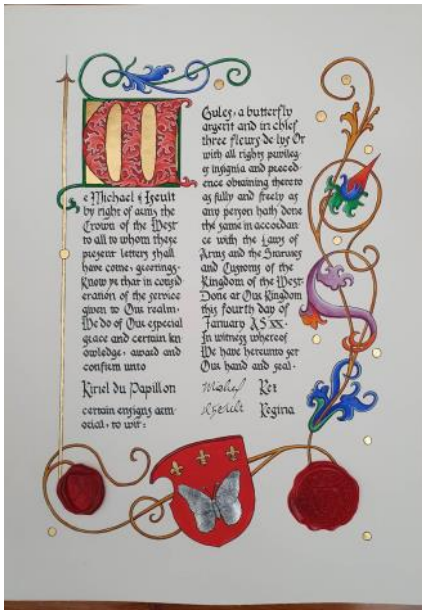 We Michael & Iseult
by right of arms the
Crown of the West
to all to whom these
present letters shall
have come, greetings.
Know ye that in consid
eration of the service
given to Our realm.
We do of Our especial
grace and certain kn
owledge, award and
confirm unto
Kiriel du Papillon
certain ensigns arm
orial, to wit:
Gules, a butterfly
argent and in chief
three fleurs de lys Or
with all rights privileg
es insignia and preced
ence obtaining thereto
as fully and freely as
any person hath done
the same in accordan
ce with the Laws of
Arms and the Statutes
and Customs of the
Kingdom of the West.
Done at Our Kingdom
this fourth day of
January AS XX.
In witness whereof
We have hereunto set
Our hand and seal.
Rex
Regina